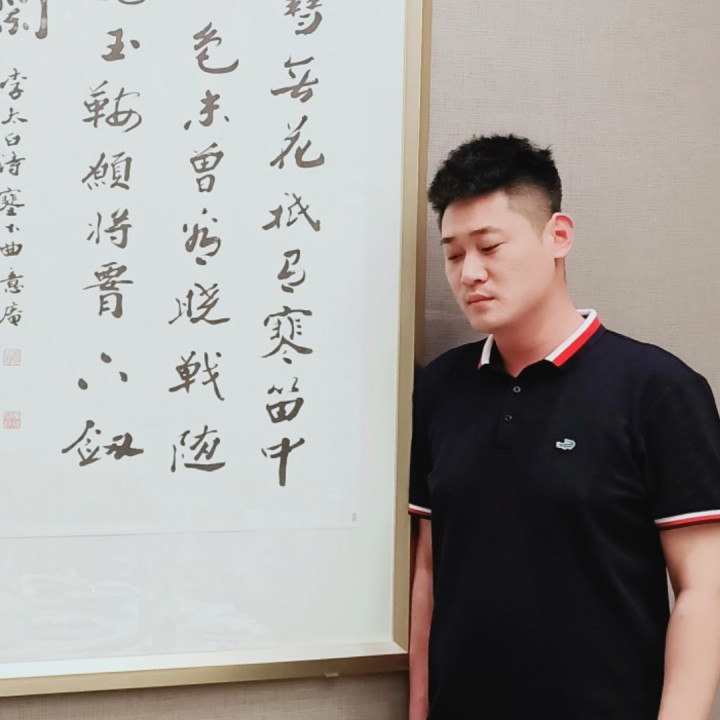 無花祇有寒笛中
色未曾看曉戰随
玉鞍願將腰下劔
李太白詩塞下曲意庵